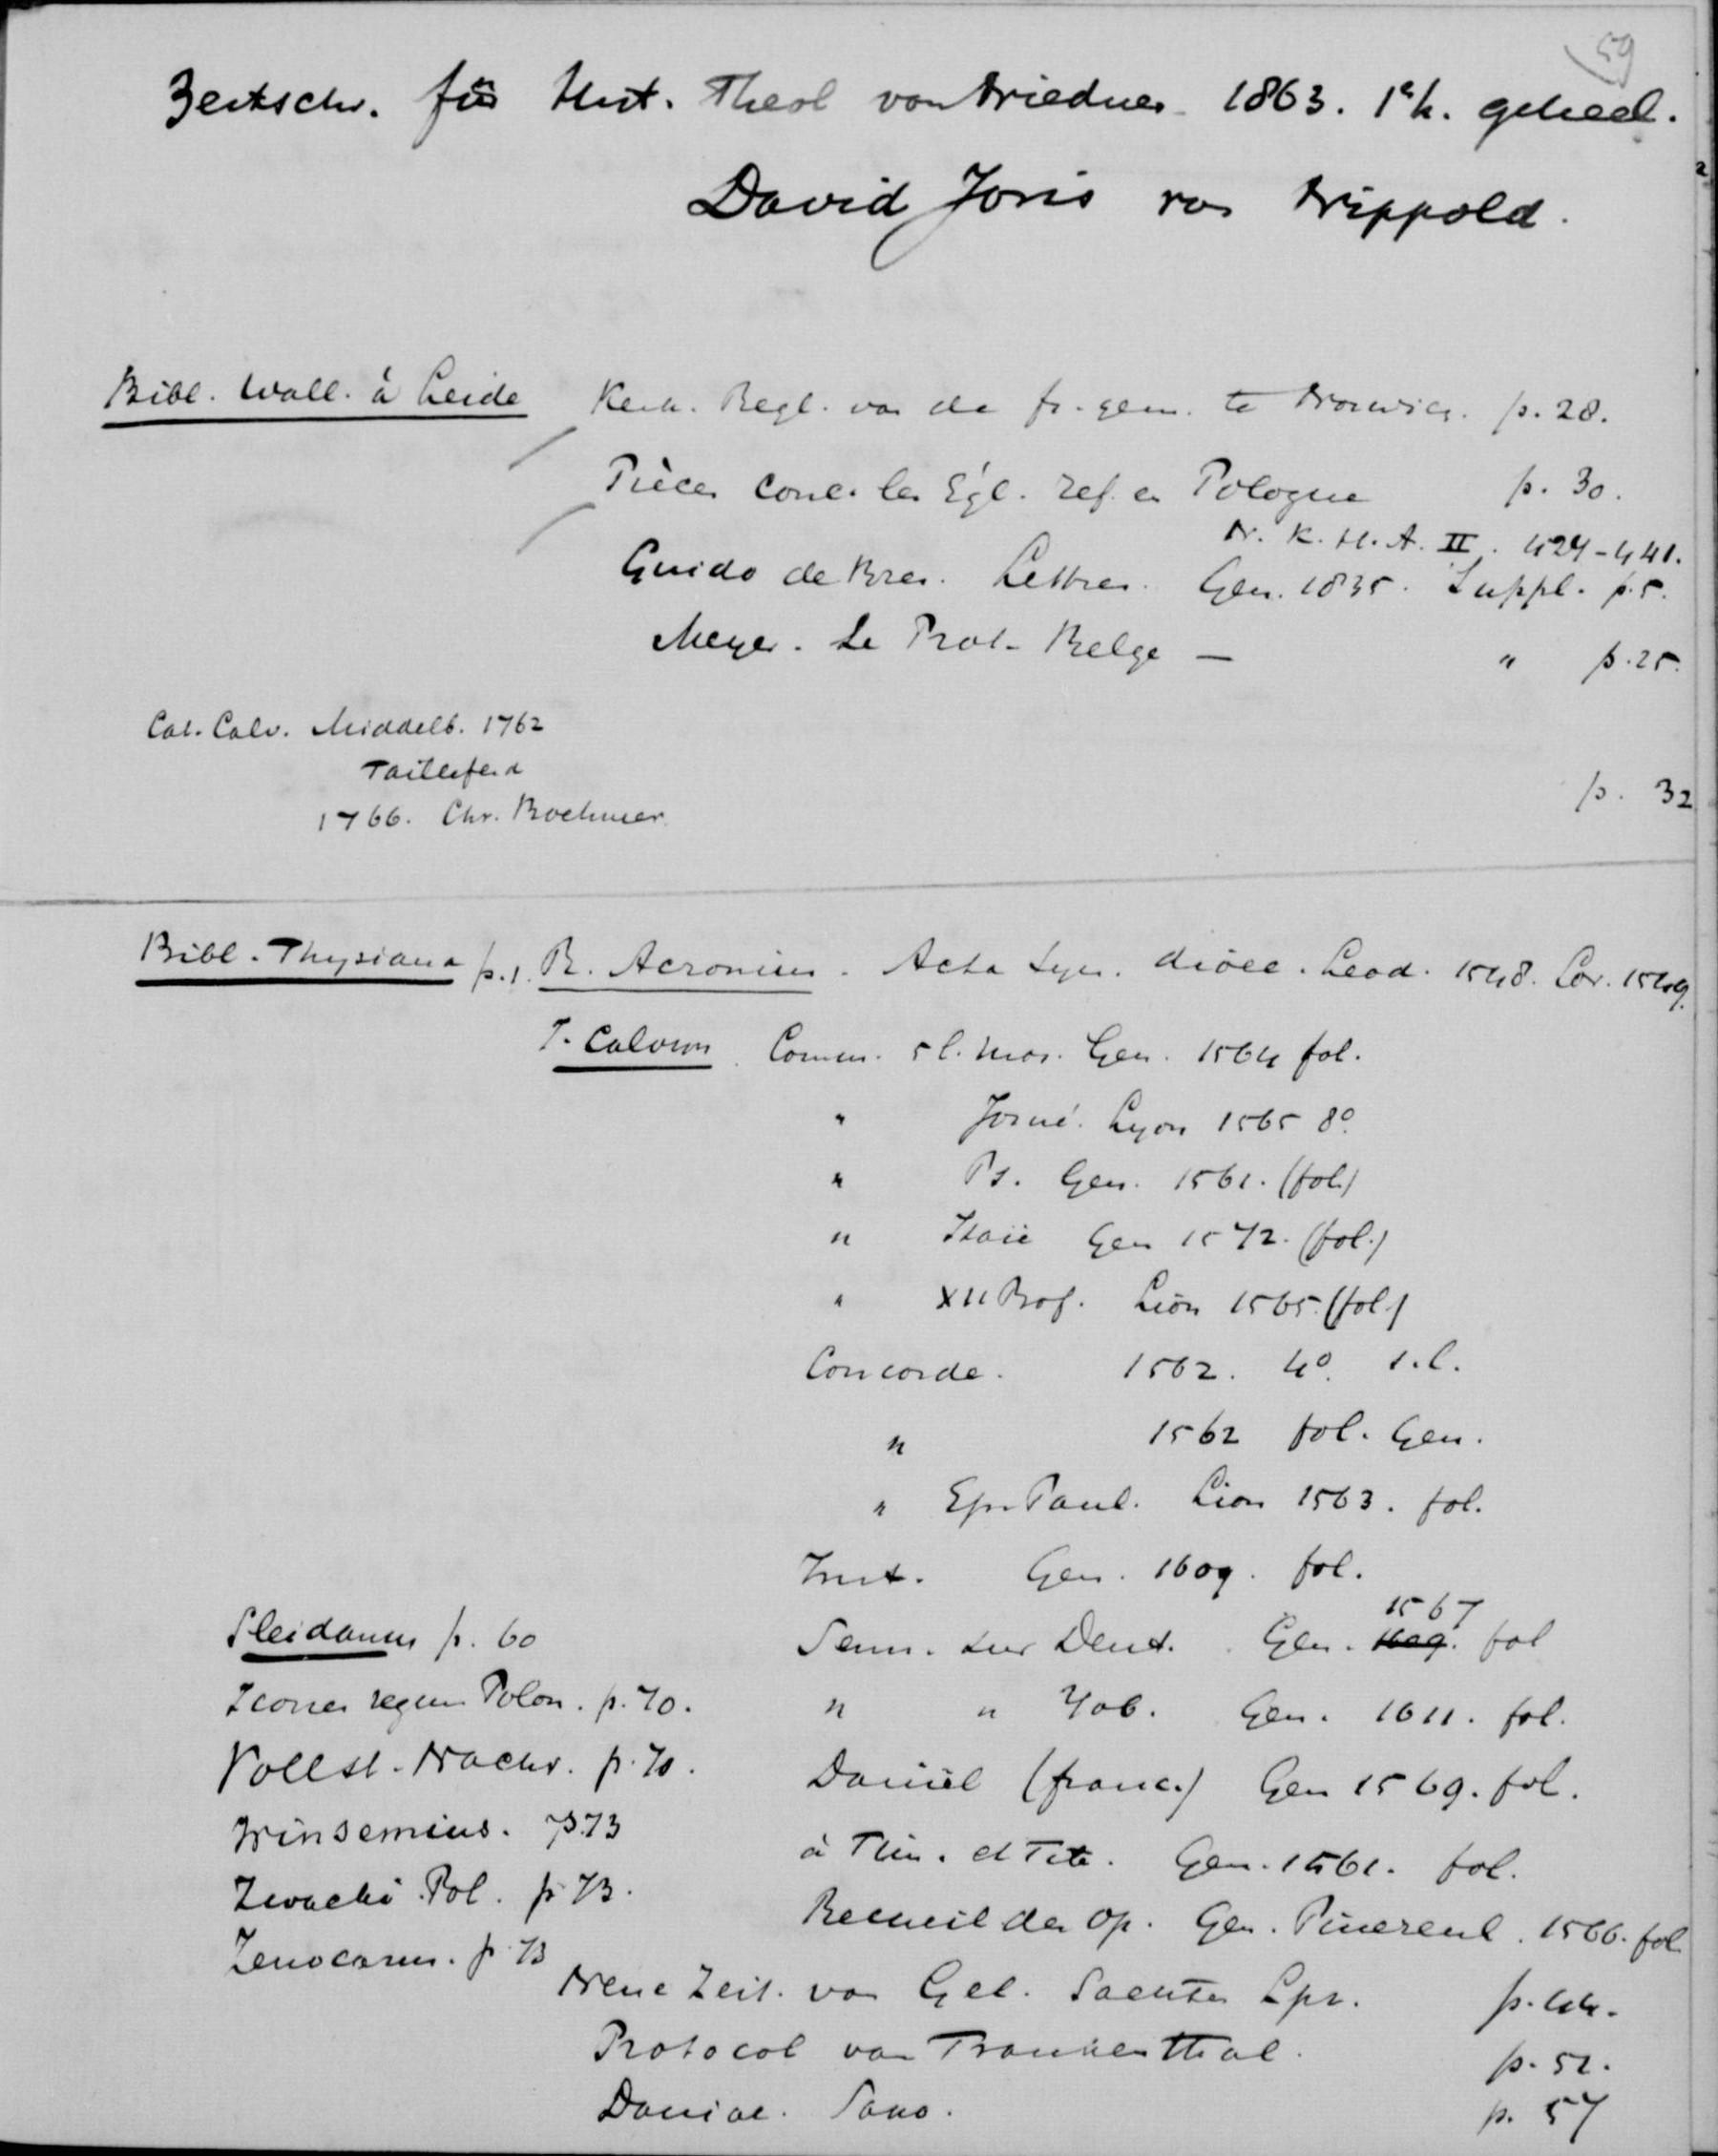 59
Zeitschr. für Hist. Theol von Niedner 1863. 1e h. geheel.
David Joris van Nippold.
Bibl. Wall. à Leide Kerk. Regl. van de fr. gem. te Norwich. p. 28.
Pièces conc. les Égl. ref. en Pologne p. 30.
N. K. H. A. II. 427-441.
Guido de Bres. Lettres. Gen. 1835. Suppl. p. 5.
Meyer. Le Prot. Belge — " p. 25.
Cat. Calv. Middelb. 1762
Taillefer
1766. Chr. Boehmer. p. 32
Bibl. Thysiana p. 1. R. Acronius. Acta Syn. dioec. Leod. 1548. Lov. 1549.
J. Calvin. Comm. 5 l. Mos. Gen. 1564 fol.
" Josué. Lyon 1565 8º.
" Ps. Gen. 1561. (fol.)
" Isaïe Gen 1572. (fol.)
" XII Prof. Lion 1565. (fol.)
Concorde. 1562. 4º. s.l.
" 1562 fol. Gen.
" Ep. Paul. Lion 1563. fol.
Inst. Gen. 1609. fol.
Sleidanus p. 60
Serm. sur Deut. Gen. 1609. 1567 fol
Icones regum Polon. p. 70.
" " Job. Gen. 1611. fol.
Vollst. Nachr. p. 70.
Daniël (franc.) Gen 1569. fol.
Winsemius. p. 73
à Tim. et Tite. Gen. 1561. fol.
Pol. p 73.
Recueil des Op. Gen. Pinereul. 1566. fol
Zenocarus. p. 73
Neue Zeit. von Gel. Sachen Lpz. p. 44.
Protocol van Frankenthal. p. 52.
p. 57